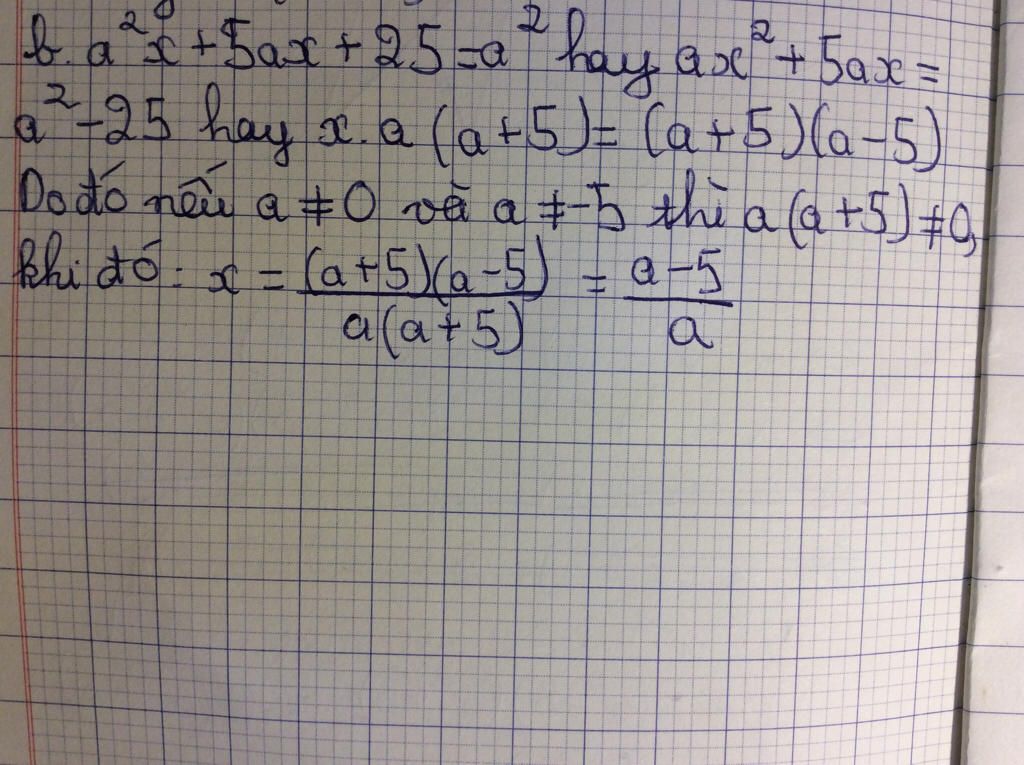 b. a²x + 5ax + 25 = a² hay ax² + 5ax =
a² - 25 hay x. a (a + 5) = (a + 5)(a - 5)
Do đó nếu a ≠ 0 và a ≠ -5 thì a(a + 5) ≠ 0,
khi đó: x = (a + 5)(a - 5) / a(a + 5) = a - 5 / a